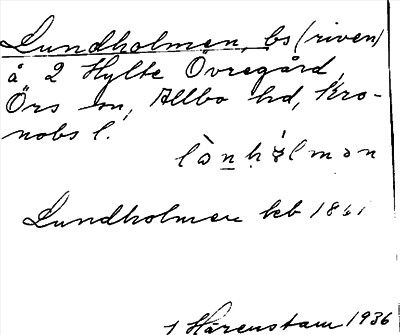 Lundholmen, bs (riven)
å 2 Hylte Övregård,
Örs sn, Allbo hd, Kro-
nobs l.
Lundholmen kb 1861
I Härenstam 1936